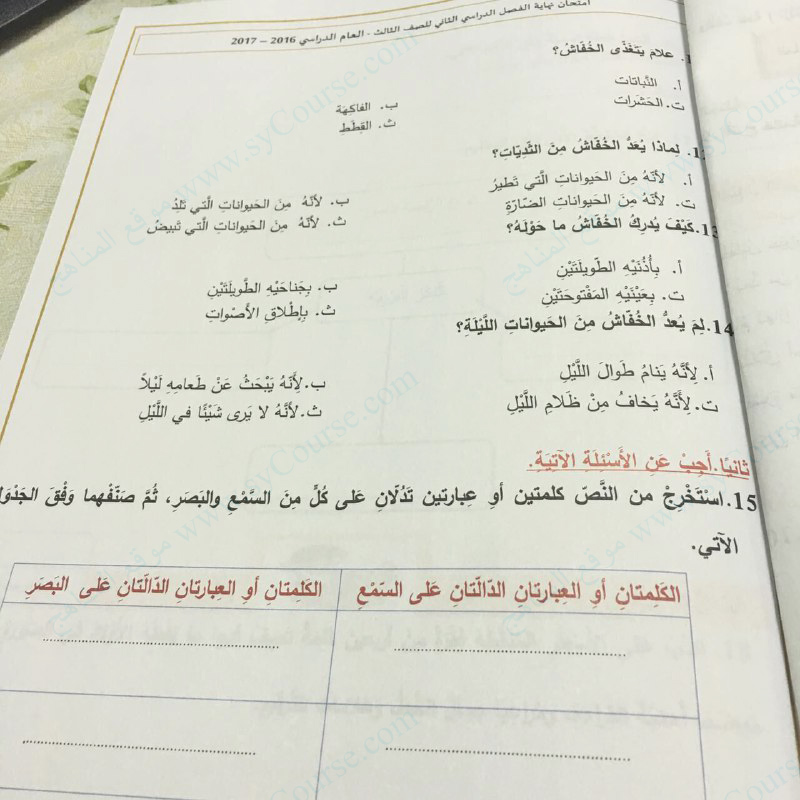 امتحان نهاية الفصل الدراسي الثاني للصف الثالث - العام الدراسي 2016 – 2017
علام يَتَغَذّى الخُفّاش؟
أ. النَّباتات
ب. الفاكِهَة
ت. الحَشَرات
ث. القِطَط
لِماذا يُعدُّ الخُفّاشُ مِنَ الثَّديَيّاتِ؟
أ. لأنّهُ مِنَ الحَيواناتِ الَّتي تَطيرُ
ب. لأنَّهُ مِنَ الحَيواناتِ الَّتي تَلِدُ
ت. لأنّهُ مِنَ الحَيواناتِ الضّارّةِ
ث. لأنّهُ مِنَ الحَيواناتِ الَّتي تَبيضُ
13. كَيْفَ يُدرِكُ الخُفّاشُ ما حَوْلَهُ؟
أ. بِأُذُنَيْهِ الطّويلَتَيْنِ
ب. بِجَناحَيْهِ الطَّويلَتَيْنِ
ت. بِعَيْنَيْهِ المَفْتوحَتَيْنِ
ث. بِإطْلاقِ الأصْواتِ
14. لِمَ يُعدُّ الخُفّاش مِنَ الحَيواناتِ اللَّيْلَةِ؟
أ. لِأَنَّهُ يَنامُ طَوالَ اللَّيْلِ
ب. لِأَنَّهُ يَبْحَثُ عَنْ طَعامِهِ لَيْلاً
ت. لِأَنَّهُ يَخافُ مِنْ ظَلامِ اللَّيْلِ
ث. لِأَنَّهُ لا يَرى شَيْئًا في اللَّيْلِ
ثانيًا. أجِبْ عَنِ الأَسْئِلَةِ الآتيَةِ.
15. اسْتَخْرِجْ من النَّصّ كلمتين أو عِبارتين تَدُلّانِ عَلى كُلٍّ مِنَ السَّمْعِ والبَصَرِ، ثُمَّ صَنّفْهما وَفْقَ الجَدْوَلِ
الآتي.
الكَلِمتانِ أوِ العِبارتانِ الدّالّتانِ عَلى السّمْعِ
الكَلِمتانِ أو العِبارتانِ الدّالّتانِ عَلى البَصَرِ
موقع المناهج www.syCourse.com